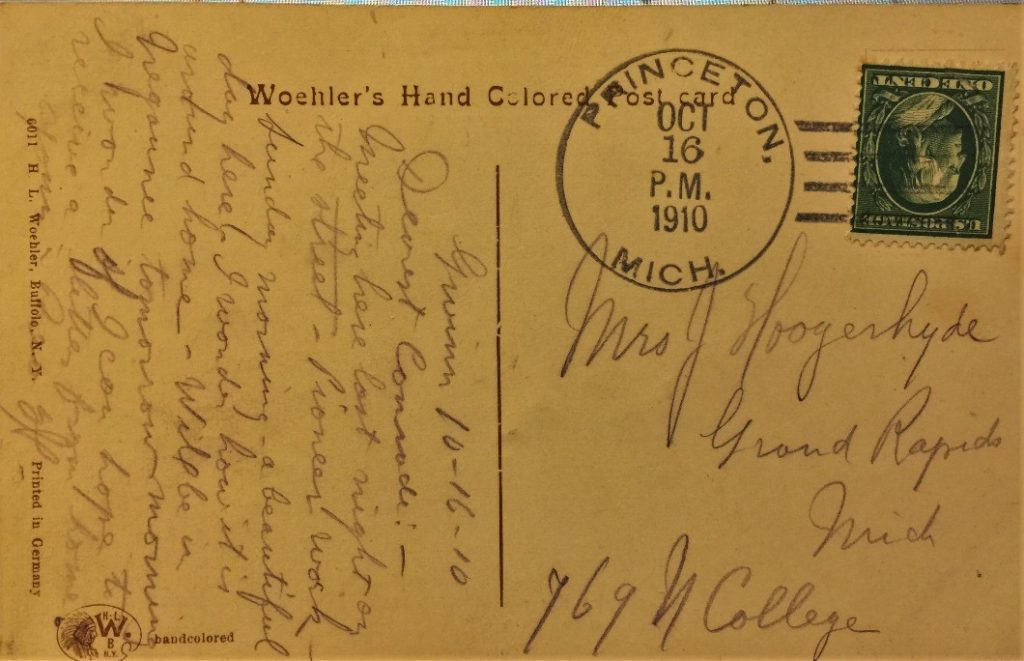 Woehler's Hand Colored Post card
PRINCETON,
OCT
16
P.M.
1910
MICH.
U.S. POSTAGE
ONE CENT
Gwinn 10-16-10
Dearest Comrade:-
Meeting here last night on
the street - Pioneer work -
Sunday morning - a beautiful
day here, I wonder how it is
around home - Will be in
Negaunee tomorrow morning
I wonder if I can hope to
receive a letter from home
Mrs J Hoogerhyde
Grand Rapids
Mich
769 N College
6011 H. L. Woehler, Buffalo, N. Y. Printed in Germany
H.L.
W.
B
N.Y.
handcolored